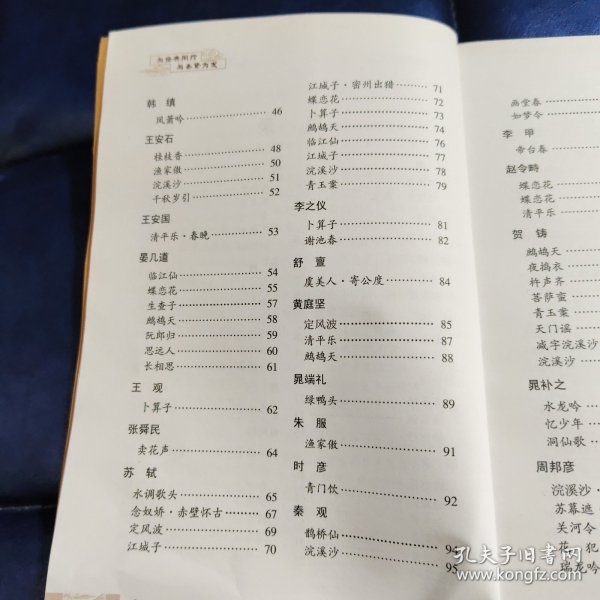 与经典同行
与圣贤为友
韩 缜
凤箫吟 46
王安石
桂枝香 48
渔家傲 50
浣溪沙 51
千秋岁引 52
王安国
清平乐·春晚 53
晏几道
临江仙 54
蝶恋花 55
生查子 57
鹧鸪天 58
阮郎归 59
思远人 60
长相思 61
王 观
卜算子 62
张舜民
卖花声 64
苏 轼
水调歌头 65
念奴娇·赤壁怀古 67
定风波 69
江城子 70
江城子·密州出猎 71
蝶恋花 72
卜算子 73
鹧鸪天 74
临江仙 76
江城子 77
浣溪沙 78
青玉案 79
李之仪
卜算子 81
谢池春 82
舒 亶
虞美人·寄公度 84
黄庭坚
定风波 85
清平乐 87
鹧鸪天 88
晁端礼
绿鸭头 89
朱 服
渔家傲 91
时 彦
青门饮 92
秦 观
鹊桥仙 94
浣溪沙 95
画堂春
如梦令
李 甲
帝台春
赵令畤
蝶恋花
蝶恋花
清平乐
贺 铸
鹧鸪天
夜捣衣
杵声齐
菩萨蛮
青玉案
天门谣
减字浣溪沙
浣溪沙
晁补之
水龙吟
忆少年
洞仙歌
周邦彦
浣溪沙
苏幕遮
关河令
花 犯
瑞龙吟
孔夫子旧书网
www.kongfz.com